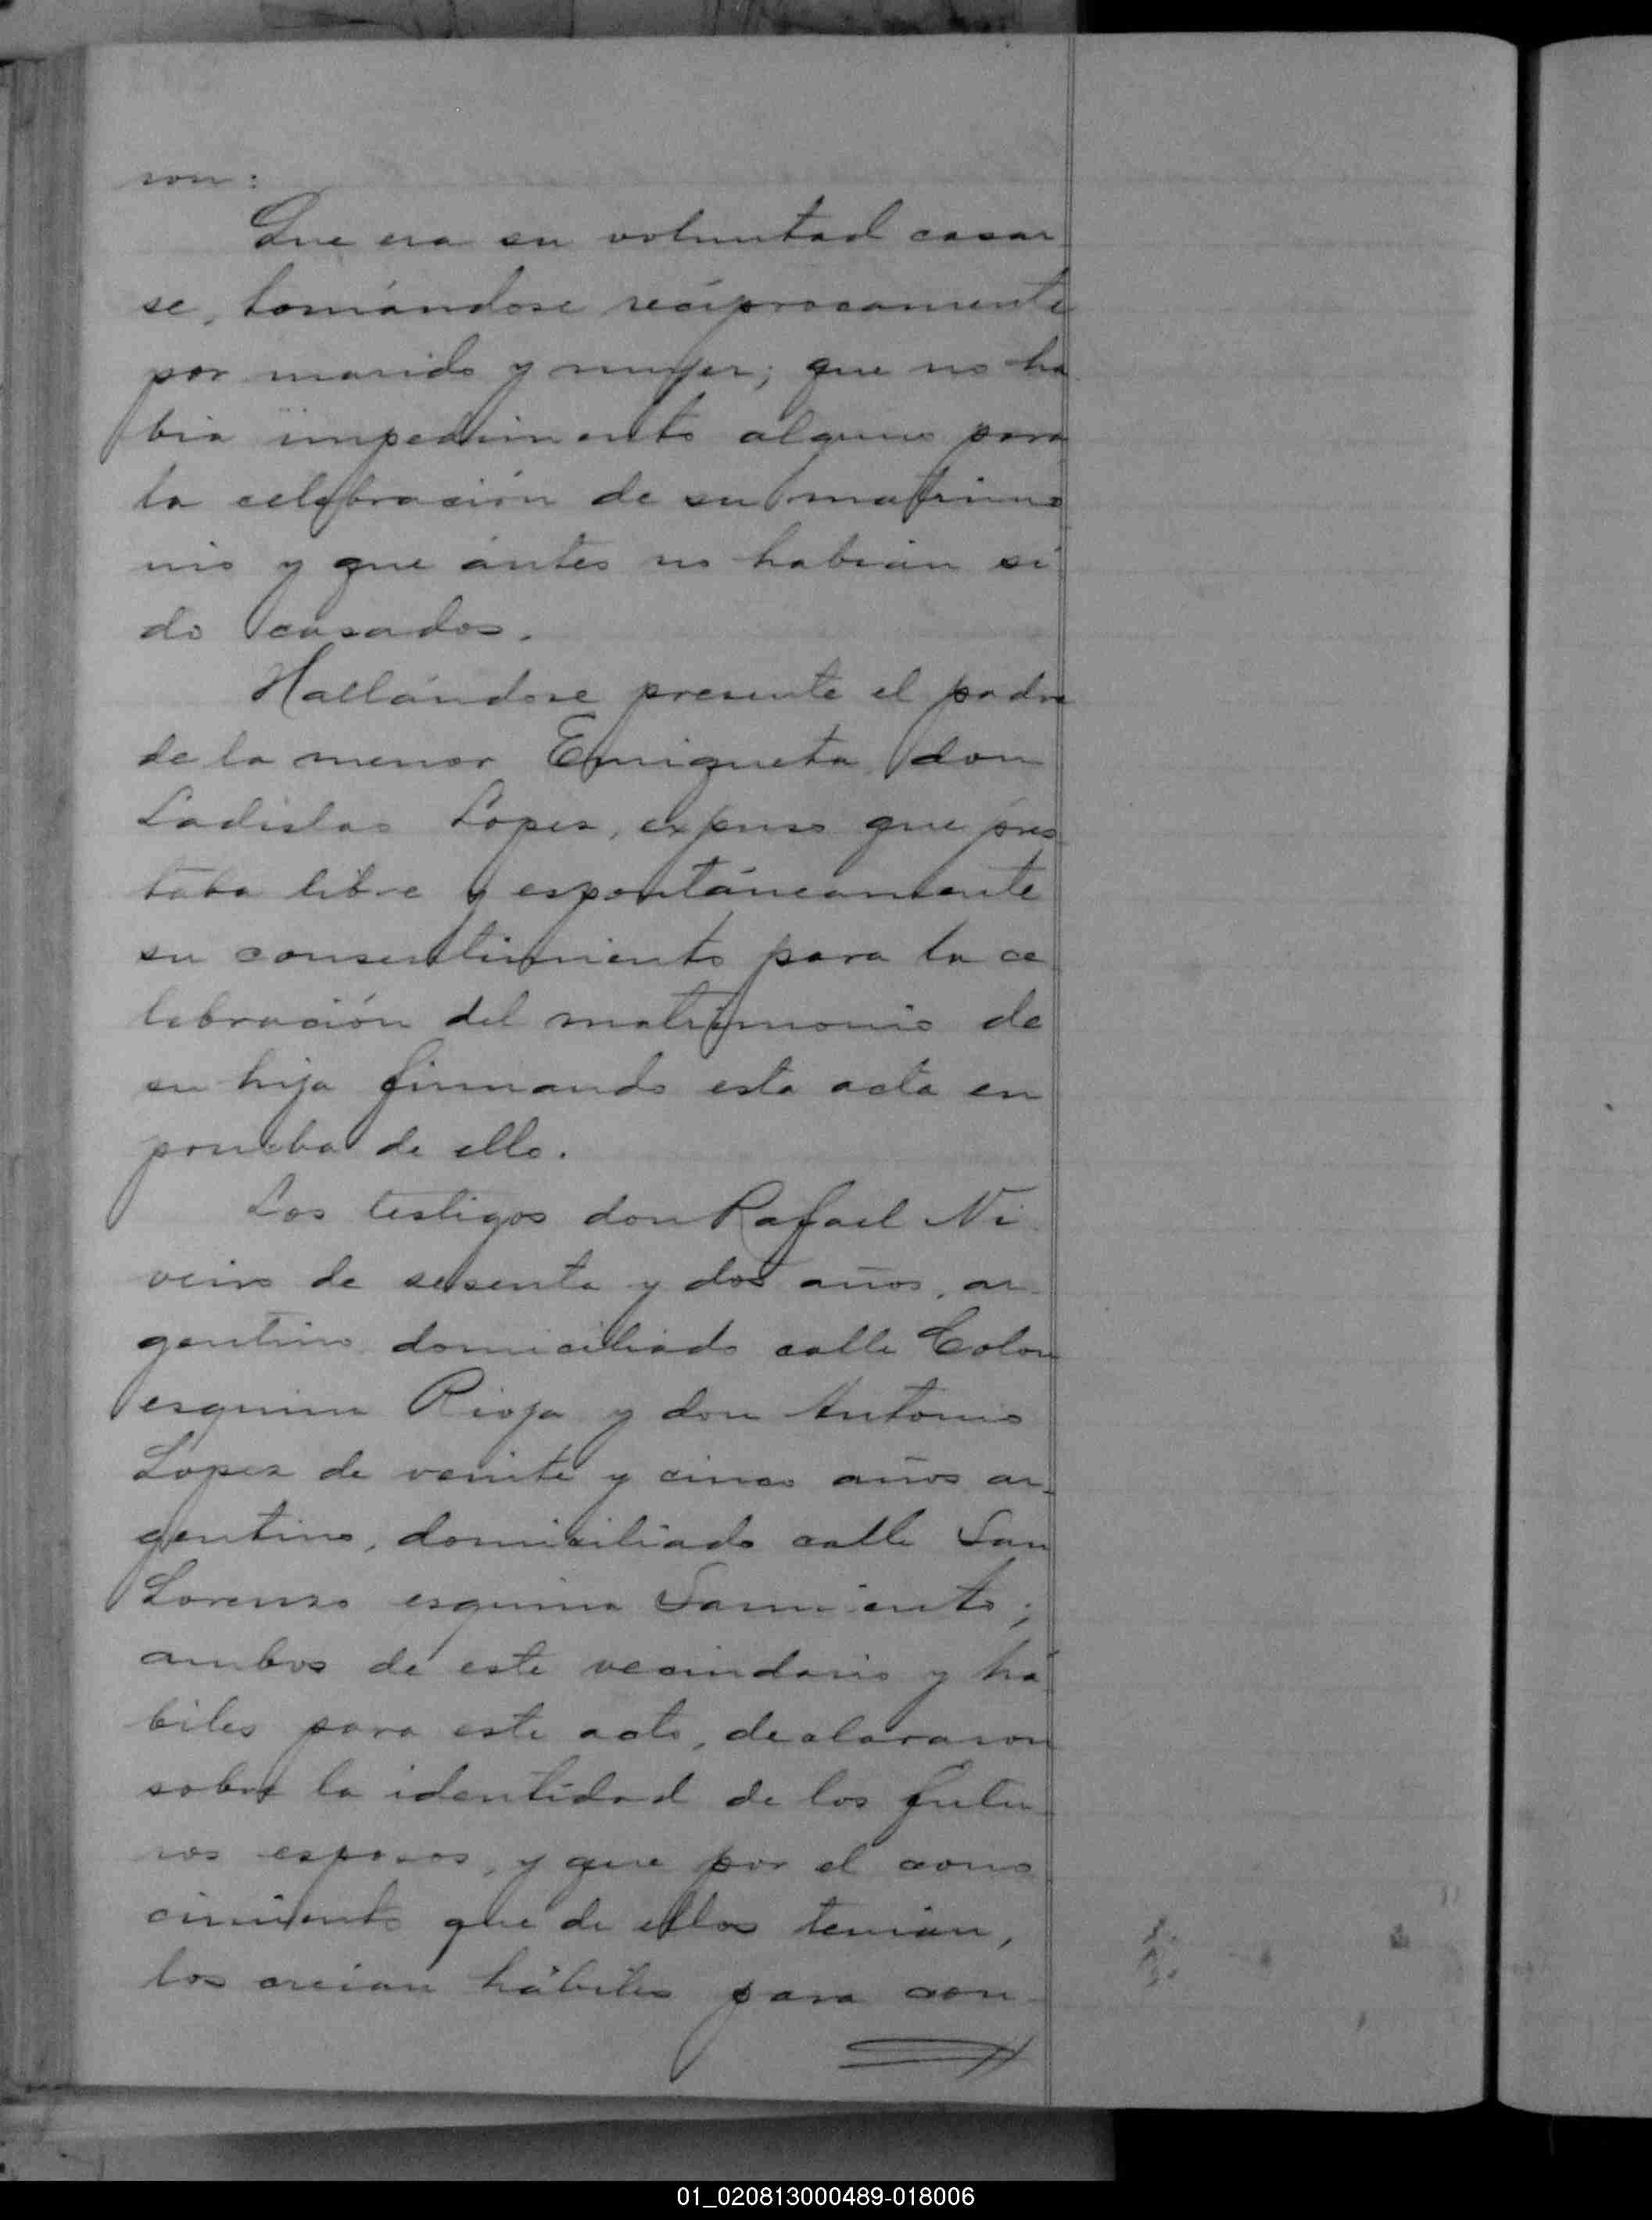 ron:
Que era su voluntad casar
se, tomándose recíprocamente
por marido y mujer; que no ha
bia impedimento alguno para
la celebración de su matrimo
nio y que ántes no habian si
do casados.
Hallándose presente el padre
de la menor Enriqueta, don
Ladislao Lopez, expuso que pres
taba libre y espontáneamente
su consentimiento para la ce
lebración del matrimonio de
su hija firmando esta acta en
prueba de ello.
Los testigos don Rafael Ni
veiro de sesenta y dos años, ar-
gentino domiciliado calle Colon
esquina Rioja y don Antonio
Lopez de veinte y cinco años ar-
gentino, domiciliado calle San
Lorenzo esquina Sarmiento;
ambos de este vecindario y há
biles para este acto, declararon
sobre la identidad de los futu
ros esposos, y que por el cono
cimiento que de ellos tenian,
los creian hábiles para con-
01_020813000489-018006